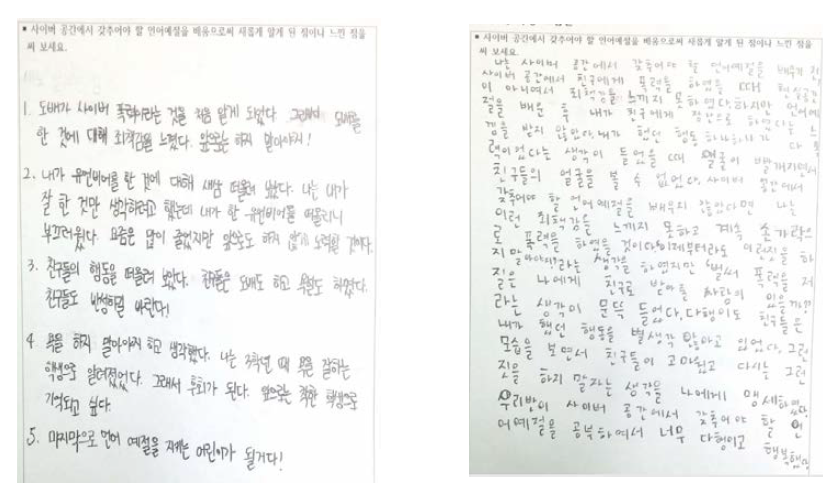 ▪ 사이버 공간에서 갖추어야 할 언어예절을 배움으로써 새롭게 알게 된 점이나 느낀 점을
써 보세요.
1. 도배가 사이버 폭력이라는 것을 처음 알게 되었다. 그래서 도배를
한 것에 대해 죄책감을 느꼈다. 앞으로는 하지 말아야지!
2. 내가 유언비어를 한 것에 대해 새삼 떠올려 보았다. 나는 내가
잘 한 것만 생각하려고 했는데 내가 한 유언비어를 떠올리니
부끄러웠다. 요즘은 많이 줄었지만 앞으로도 하지 않게 노력할 것이다.
3. 친구들의 행동을 떠올려 보았다. 친구들은 도배도 하고 욕설도 하였다.
친구들도 반성하길 바란다!
4. 욕을 하지 말아야지 하고 생각했다. 나는 3학년 때 욕을 잘하는
학생으로 알려졌었다. 그래서 후회가 된다. 앞으로는 착한 학생으로
기억되고 싶다.
5. 마지막으로 언어 예절을 지키는 어린이가 될거다!
▪ 사이버 공간에서 갖추어야 할 언어예절을 배움으로써 새롭게 알게 된 점이나 느낀 점을
써 보세요.
나는 사이버 공간에서 갖추어야 할 언어예절을 배우기 전
사이버 공간에서 친구에게 폭력을 하였을 때 현실공간
이 아니여서 죄책감을 느끼지 못하였다. 하지만 언어예
절을 배운 후 내가 친구에게 장난으로 하였다는 느
낌을 받지 않았다. 내가 했던 행동 하나하나가 다 폭
력이었다는 생각이 들었을 때 얼굴이 빨개지면서
친구들의 얼굴을 볼 수 없었다. 사이버 공간에서
갖추어야 할 언어예절을 배우지 않았다면 나는
이런 죄책감을 느끼지 못하고 계속 손가락으
로 폭력을 하였을 것이다. 이제부터라도 이런짓을 하
지 말아야지!라는 생각을 하였지만 벌써 폭력을 저
질은 나에게 친구로 받아줄 사람이 있을까?
라는 생각이 문뜩 들었다. 다행이도 친구들은
내가 했던 행동을 별생각 않하고 있었다. 그런
모습을 보면서 친구들이 고마웠고 다시는 그런
짓을 하지 말자는 생각을 나에게 맹세하였다.
우리반이 사이버 공간에서 갖추어야 할 언
어예절을 공부하여서 너무 다행이고 행복했다